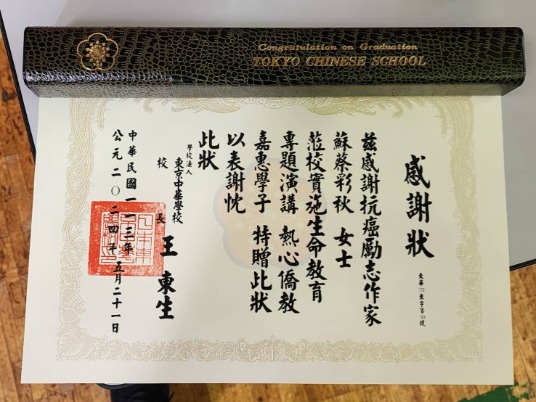 Congratulation on Graduation
TOKYO CHINESE SCHOOL
感謝狀
茲感謝抗癌勵志作家
蘇蔡彩秋 女士
蒞校實施生命教育
專題演講 熱心僑教
嘉惠學子 特贈此狀
以表謝忱
此狀
學校法人
東京中華學校
校 長 王 東生
中華民國一一三年
公元二〇二四年 五月二十一日